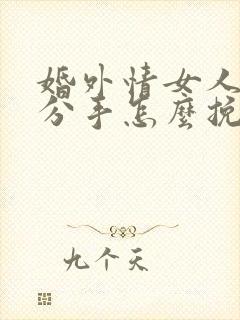 婚外情女人
分手怎麼挽
九个天